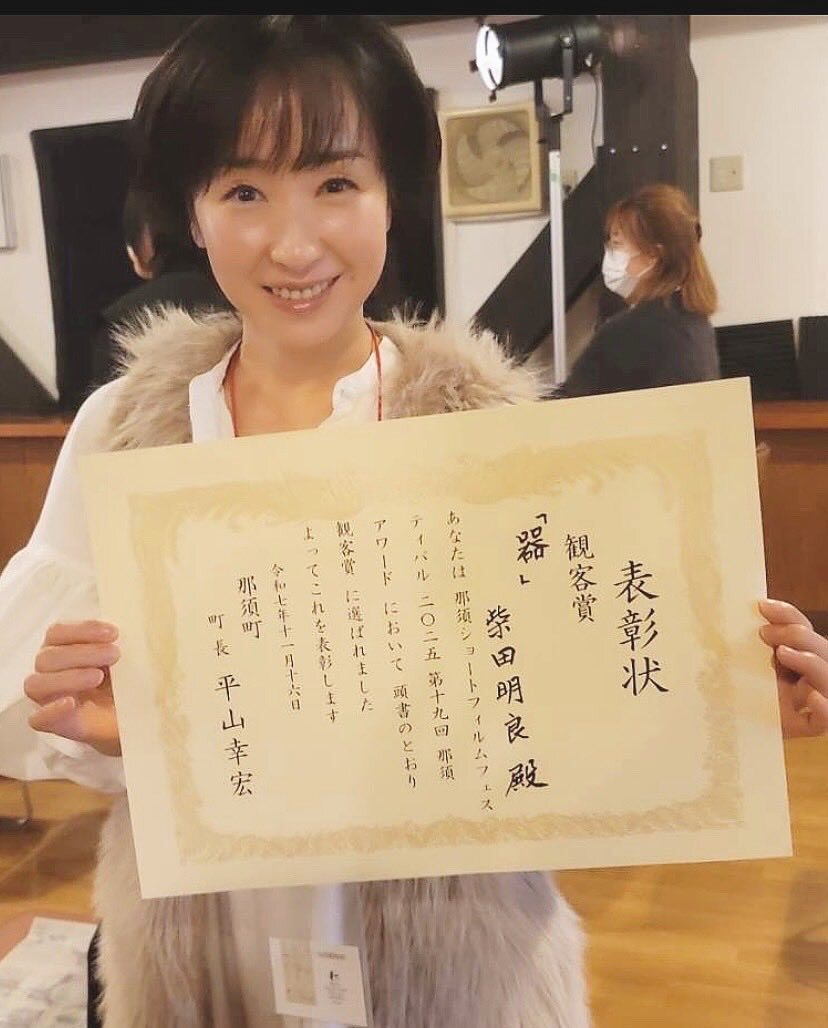 表彰状
観客賞
「器」 柴田明良 殿
あなたは 那須ショートフィルムフェス
ティバル 二〇二五 第十九回 那須
アワード において 頭書のとおり
観客賞 に選ばれました
よってこれを表彰します
令和七年十一月十六日
那須町
町長 平山幸宏